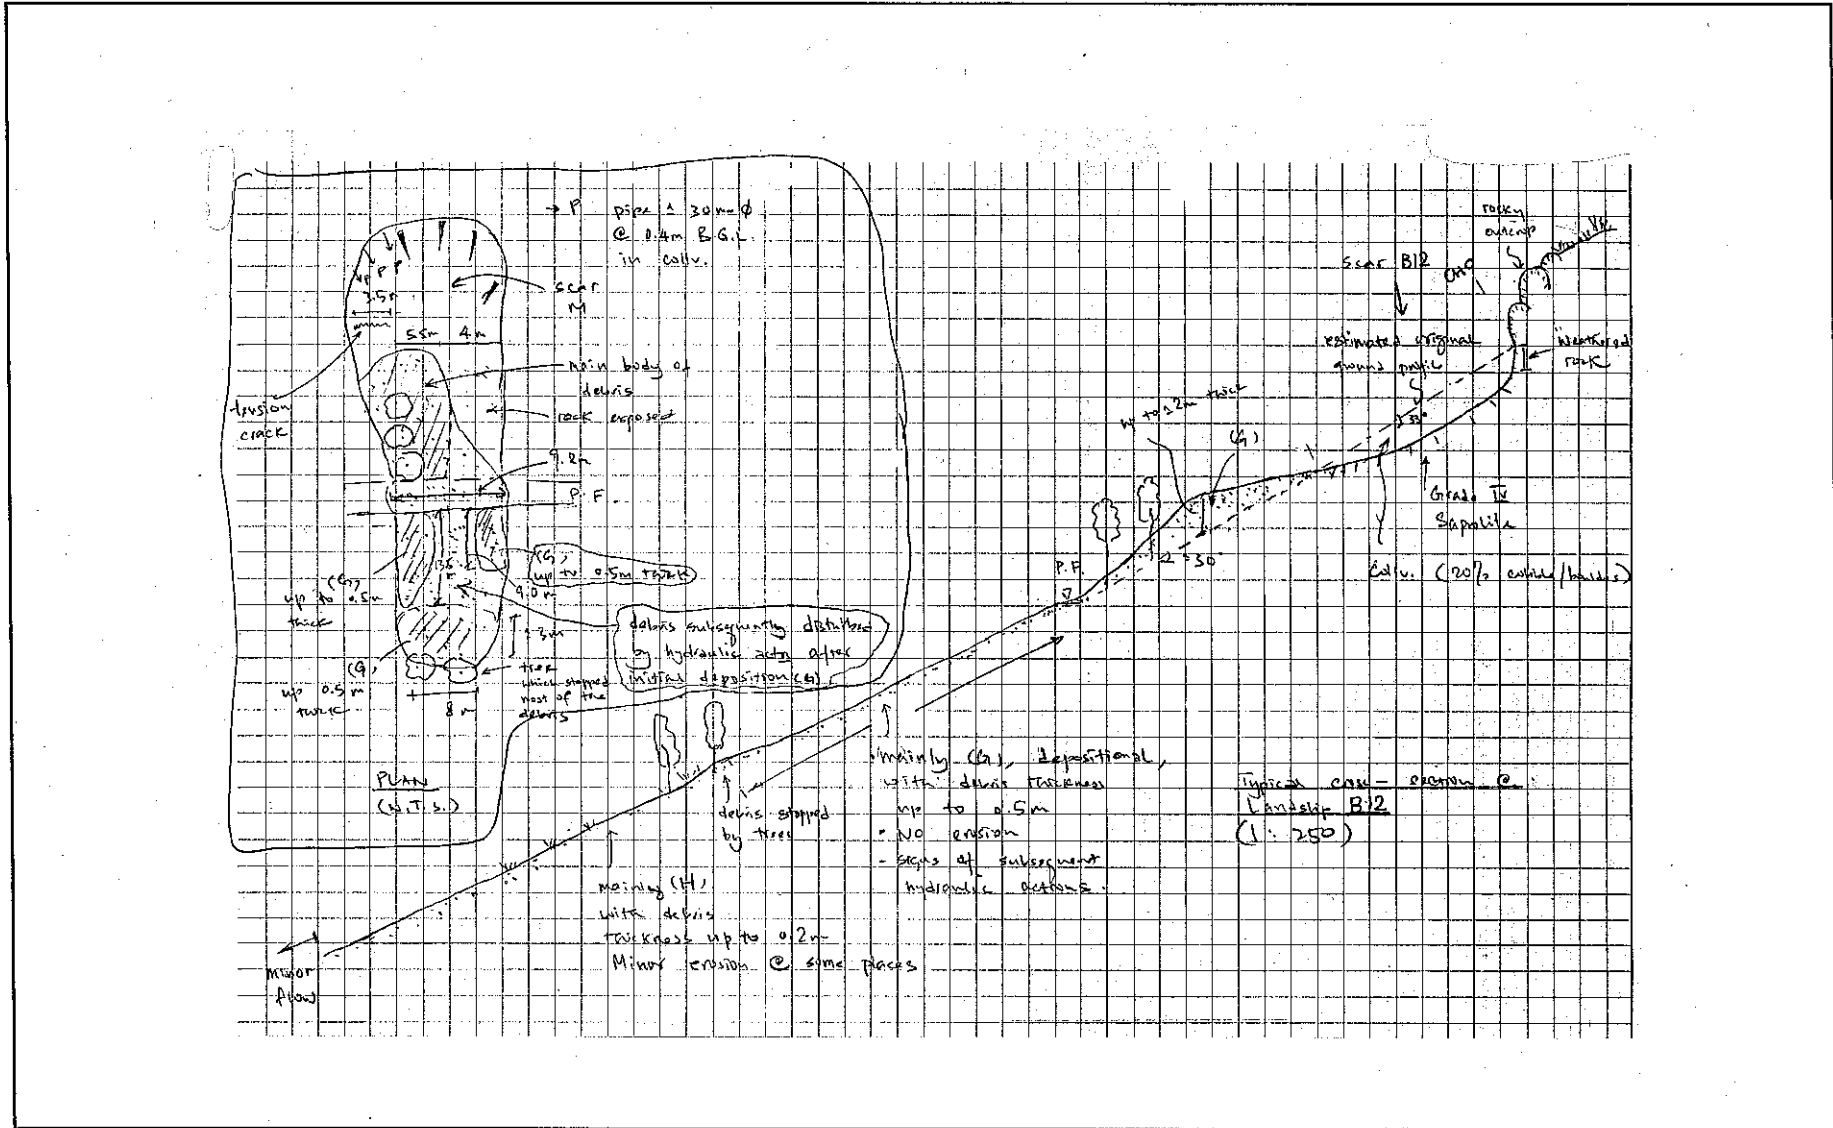 → P pipe ± 30mm ø
@ 0.4m B.G.L.
in colluv.
P P P
3.5m
scar
M
5.5m 4m
main body of
debris
tension
crack
rock exposed
9.2m
P.F.
(G)
up to 0.5m
thick
(G)
up to 0.5m thick
9.0m
debris subsequently disturbed
by hydraulic action after
initial deposition (G)
3m
(G)
up 0.5m
thick
trees
which stopped
most of the
debris
8m
PLAN
(N.T.S.)
rocky
outcrop
Scar B12
estimated original
ground profile
Weathered
rock
33°
up to ±2m thick
(G)
Grade IV
Saprolite
30°
P.F.
debris stopped
by trees
mainly (G), depositional,
with debris thickness
up to 0.5m
- No erosion
- signs of subsequent
hydraulic actions.
Typical cross-section @
Landslip B12
(1:250)
mainly (H)
with debris
thickness up to 0.2m
Minor erosion @ some places
minor
flow